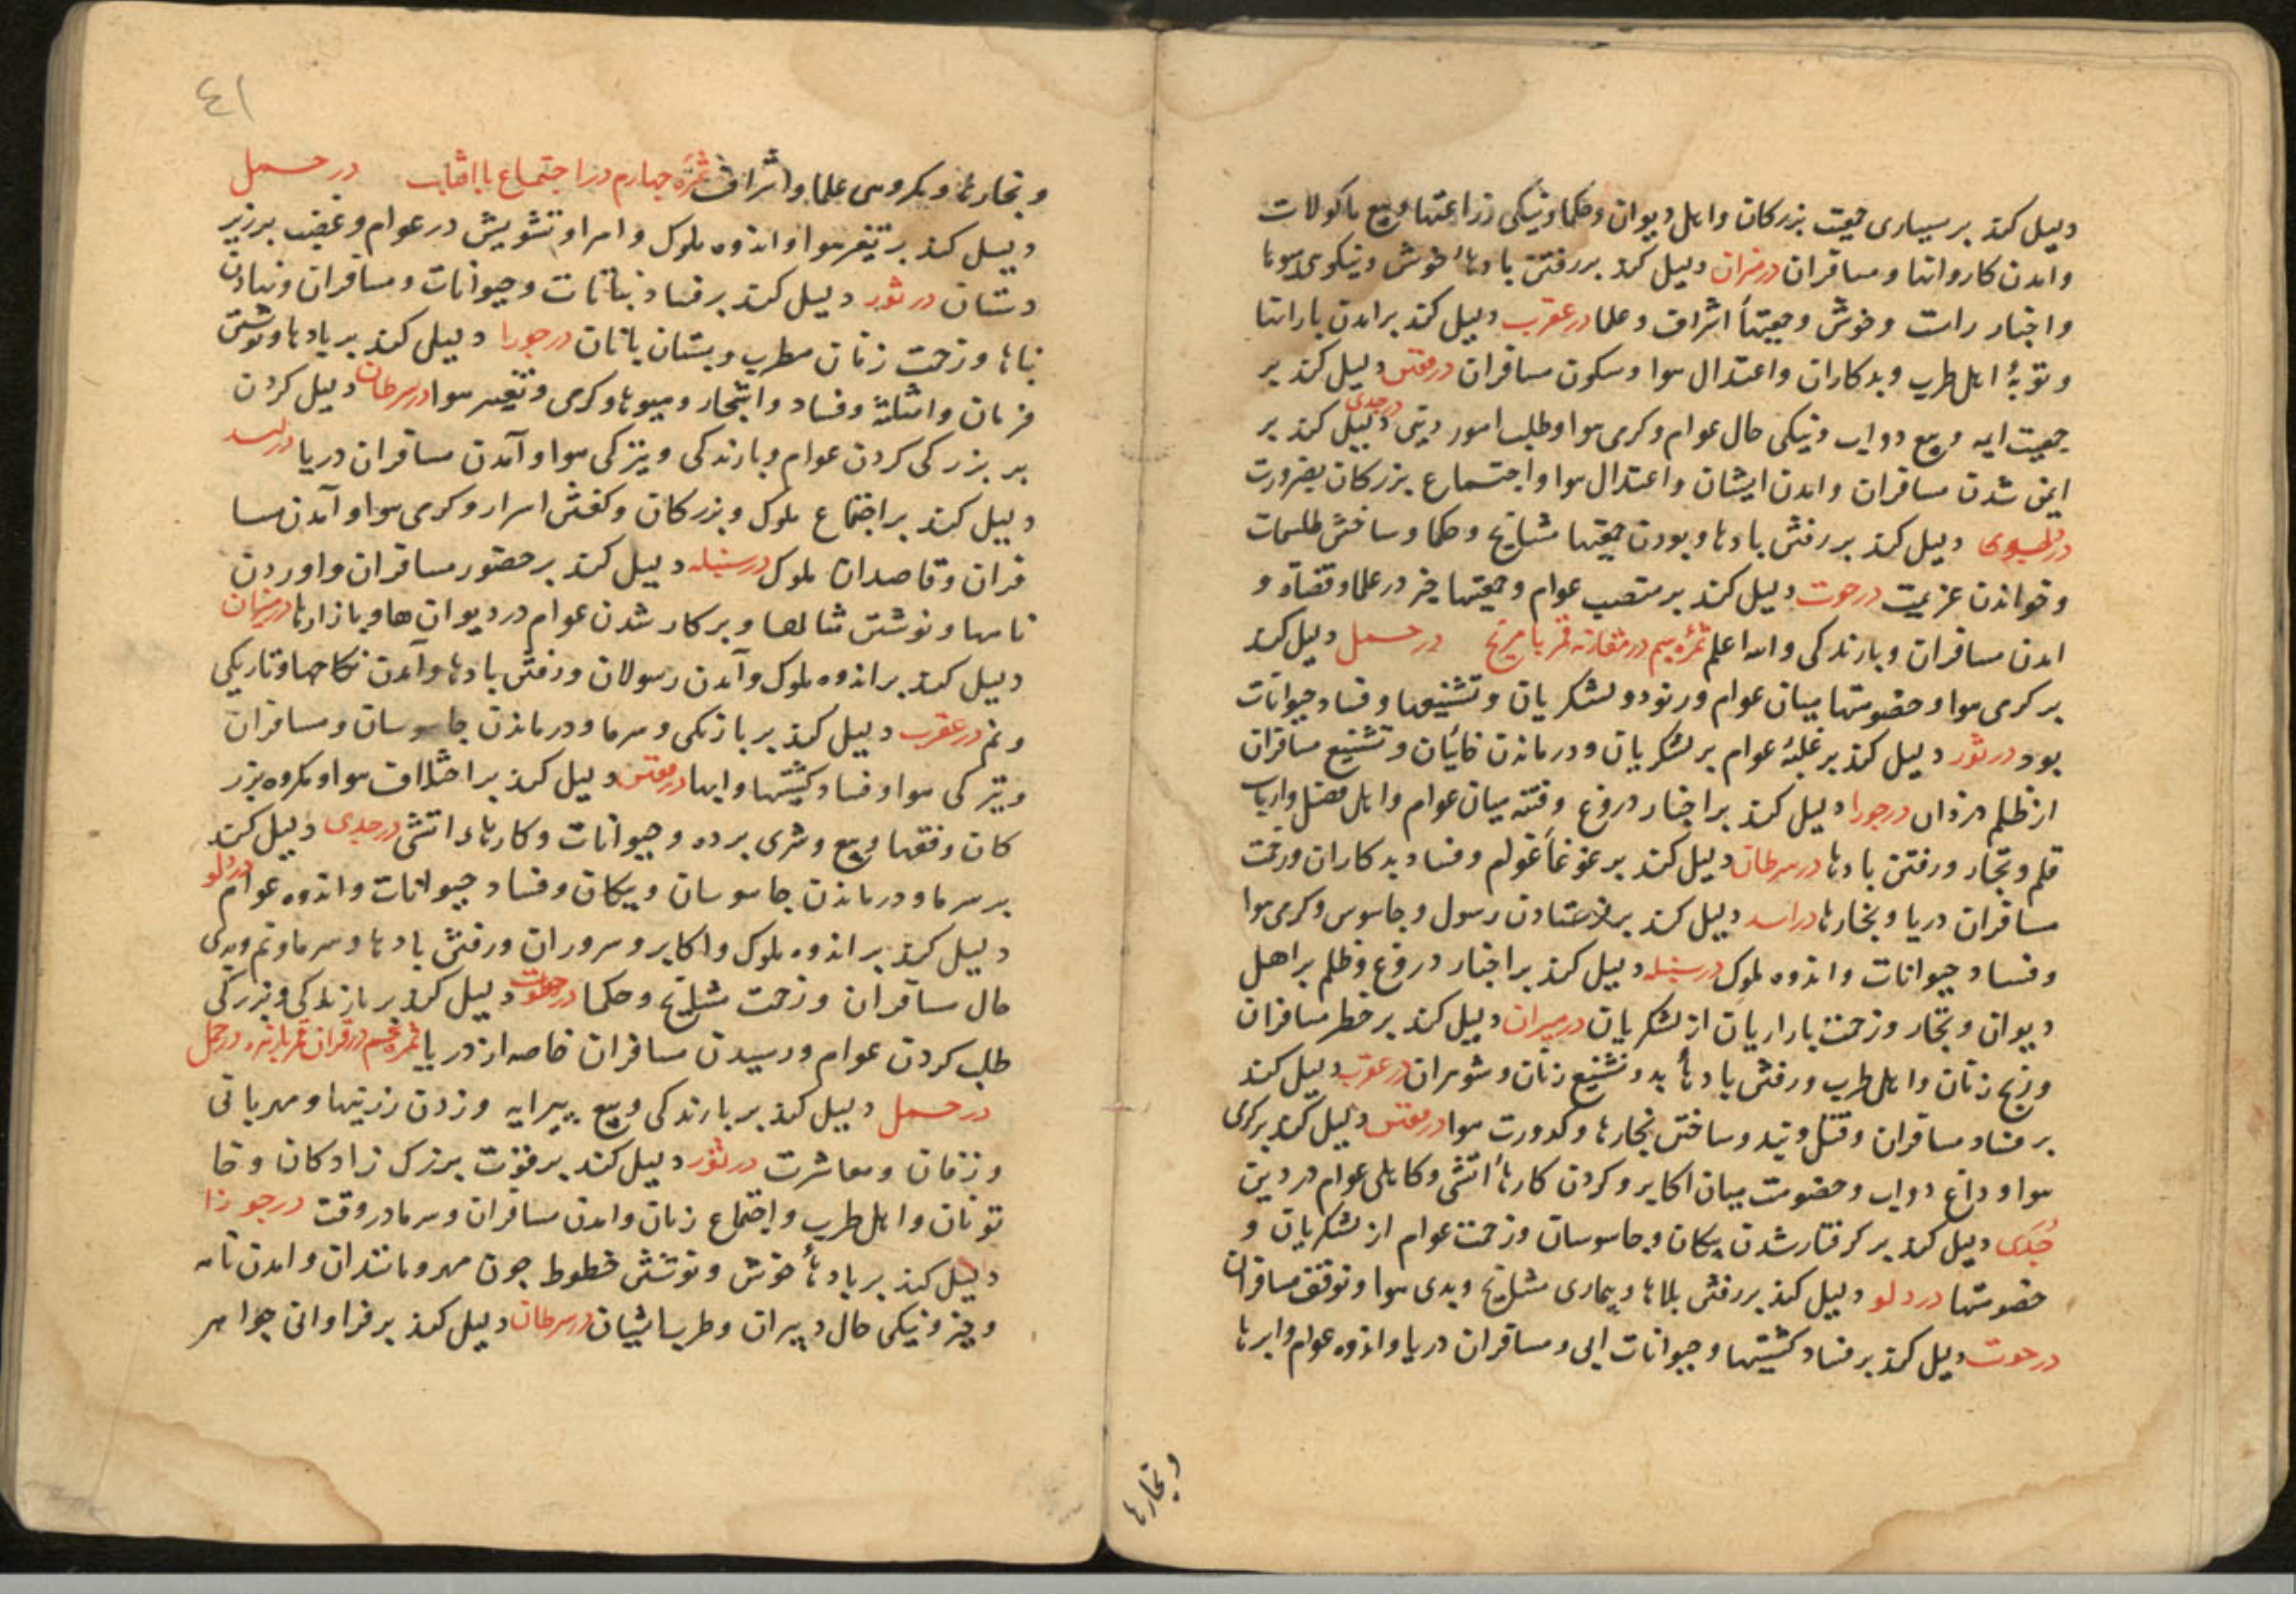 دلیل کند بر بسیاری جمعیت بزرکان و اهل دیوان و حکما و نیکی زراعتها و بیع ماکولات
و امدن کاروانها و مسافران در میزان دلیل کند بر رفتن بادهاء خوش و نیکوی میوها
و اخبار راست و خوش و جمعیتهاء اشراف و علما در عقرب دلیل کند بر امدن بارانها
و توبهٔ اهل طرب و بدکاران و اعتدال هوا و سکون مسافران در قوس دلیل کند بر
جمعیت ایمه و بیع دواب و نیکی حال عوام و کرمی هوا و طلب امور دینی در جدی دلیل کند بر
ایمن شدن مسافران و امدن ایشان و اعتدال هوا و اجتماع بزرکان بضرورت
در دلو دلیل کند بر رفتن بادها و بودن جمعیتها مشایخ و حکما و ساختن طلسمات
و خواندن عزیمت در حوت دلیل کند بر تعصب عوام و جمعیتها خیر در علما و قضاة و
امدن مسافران و بارندکی و الله اعلم ثمرهٔ سیم در مقارنه قمر با مریخ در حمل دلیل کند
بر کرمی هوا و خصومتها میان عوام و رنود و لشکریان و تشنیعها و فساد حیوانات
بود در ثور دلیل کند بر غلبهٔ عوام بر لشکریان و درماندن خائنان و تشنیع مسافران
از ظلم دزدان در جوزا دلیل کند بر اخبار دروغ و فتنه میان عوام و اهل فضل و ارباب
قلم و تجار و رفتن بادها در سرطان دلیل کند بر غوغاء عوام و فساد بدکاران و زحمت
مسافران دریا و بخارها در اسد دلیل کند بر فرستادن رسول و جاسوس و کرمی هوا
و فساد حیوانات و اندوه ملوک در سنبله دلیل کند بر اخبار دروغ و ظلم بر اهل
دیوان و تجار و زحمت بازاریان از لشکریان در میزان دلیل کند بر خطر مسافران
و رنج زنان و اهل طرب و رفتن بادهاء بد و تشنیع زنان و شوهران در عقرب دلیل کند
بر فساد مسافران و قتل و بند و ساختن بخارها و کدورت هوا در قوس دلیل کند بر کرمی
هوا و داغ دواب و خصومت میان اکابر و کردن کارهاء اتشی و کاهلی عوام در دین
جدی دلیل کند بر کرفتار شدن پیکان و جاسوسان و زحمت عوام از لشکریان و
خصومتها در دلو دلیل کند بر رفتن بلاها و بیماری مشایخ و بدی هوا و توقف مسافران
در حوت دلیل کند بر فساد کشتیها و حیوانات ابی و مسافران دریا و اندوه عوام و ابرها
و بخارها
٤١
و بخارها و مکروهی علما و اشراف ثمرهٔ چهارم در اجتماع با افتاب در حمل
دلیل کند بر تغیر هوا و اندوه ملوک و امرا و تشویش در عوام و غضب بر زیر
دستان در ثور دلیل کند بر فساد نباتات و حیوانات و مسافران و نهادن
بناها و زحمت زنان مطرب و بستان بانان در جوزا دلیل کند بر بادها و نوشتن
فرمان و امثلهٔ و فساد و اشجار و میوها و کرمی و تغیر هوا در سرطان دلیل کردن
بر بزرکی کردن عوام و بارندکی و تیزکی هوا و آمدن مسافران دریا در اسد
دلیل کند بر اجتماع ملوک و بزرکان و کفتن اسرار و کرمی هوا و آمدن مسا
فران و قاصدان ملوک در سنبله دلیل کند بر حضور مسافران و اوردن
نامها و نوشتن مثالها و بر کار شدن عوام در دیوان ها و بازارها در میزان
دلیل کند بر اندوه ملوک و آمدن رسولان و رفتن بادها و آمدن نکاحها و تاریکی
و نم در عقرب دلیل کند بر بارندکی و سرما و درماندن جاسوسان و مسافران
و تیزکی هوا و فساد کشتیها و ابها در قوس دلیل کند بر اختلاف هوا و مکروه بزر
کان و فقها و بیع و شری برده و حیوانات و کارهاء اتشی در جدی دلیل کند
بر سرما و درماندن جاسوسان و پیکان و فساد حیوانات و اندوه عوام در دلو
دلیل کند بر اندوه ملوک و اکابر و سروران و رفتن بادها و سرما و نم و بدی
حال مسافران و زحمت مشایخ و حکما در حوت دلیل کند بر بارندکی و بزرکی
طلب کردن عوام و رسیدن مسافران خاصه از دریا ثمره پنجم در قران قمر با زهره در حمل
در حمل دلیل کند بر بارندکی و بیع پیرایه و زدن زرینها و مهربانی
و زفان و معاشرت در ثور دلیل کند بر قوت بزرک زادکان و خا
تونان و اهل طرب و اجتماع زنان و امدن مسافران و سرما در وقت در جوزا
دلیل کند بر بادهاء خوش و نوشتن خطوط چون مهر و مانند ان و امدن نامه
و خیر و نیکی حال دبیران و طرب ایشان در سرطان دلیل کند بر فراوانی جواهر